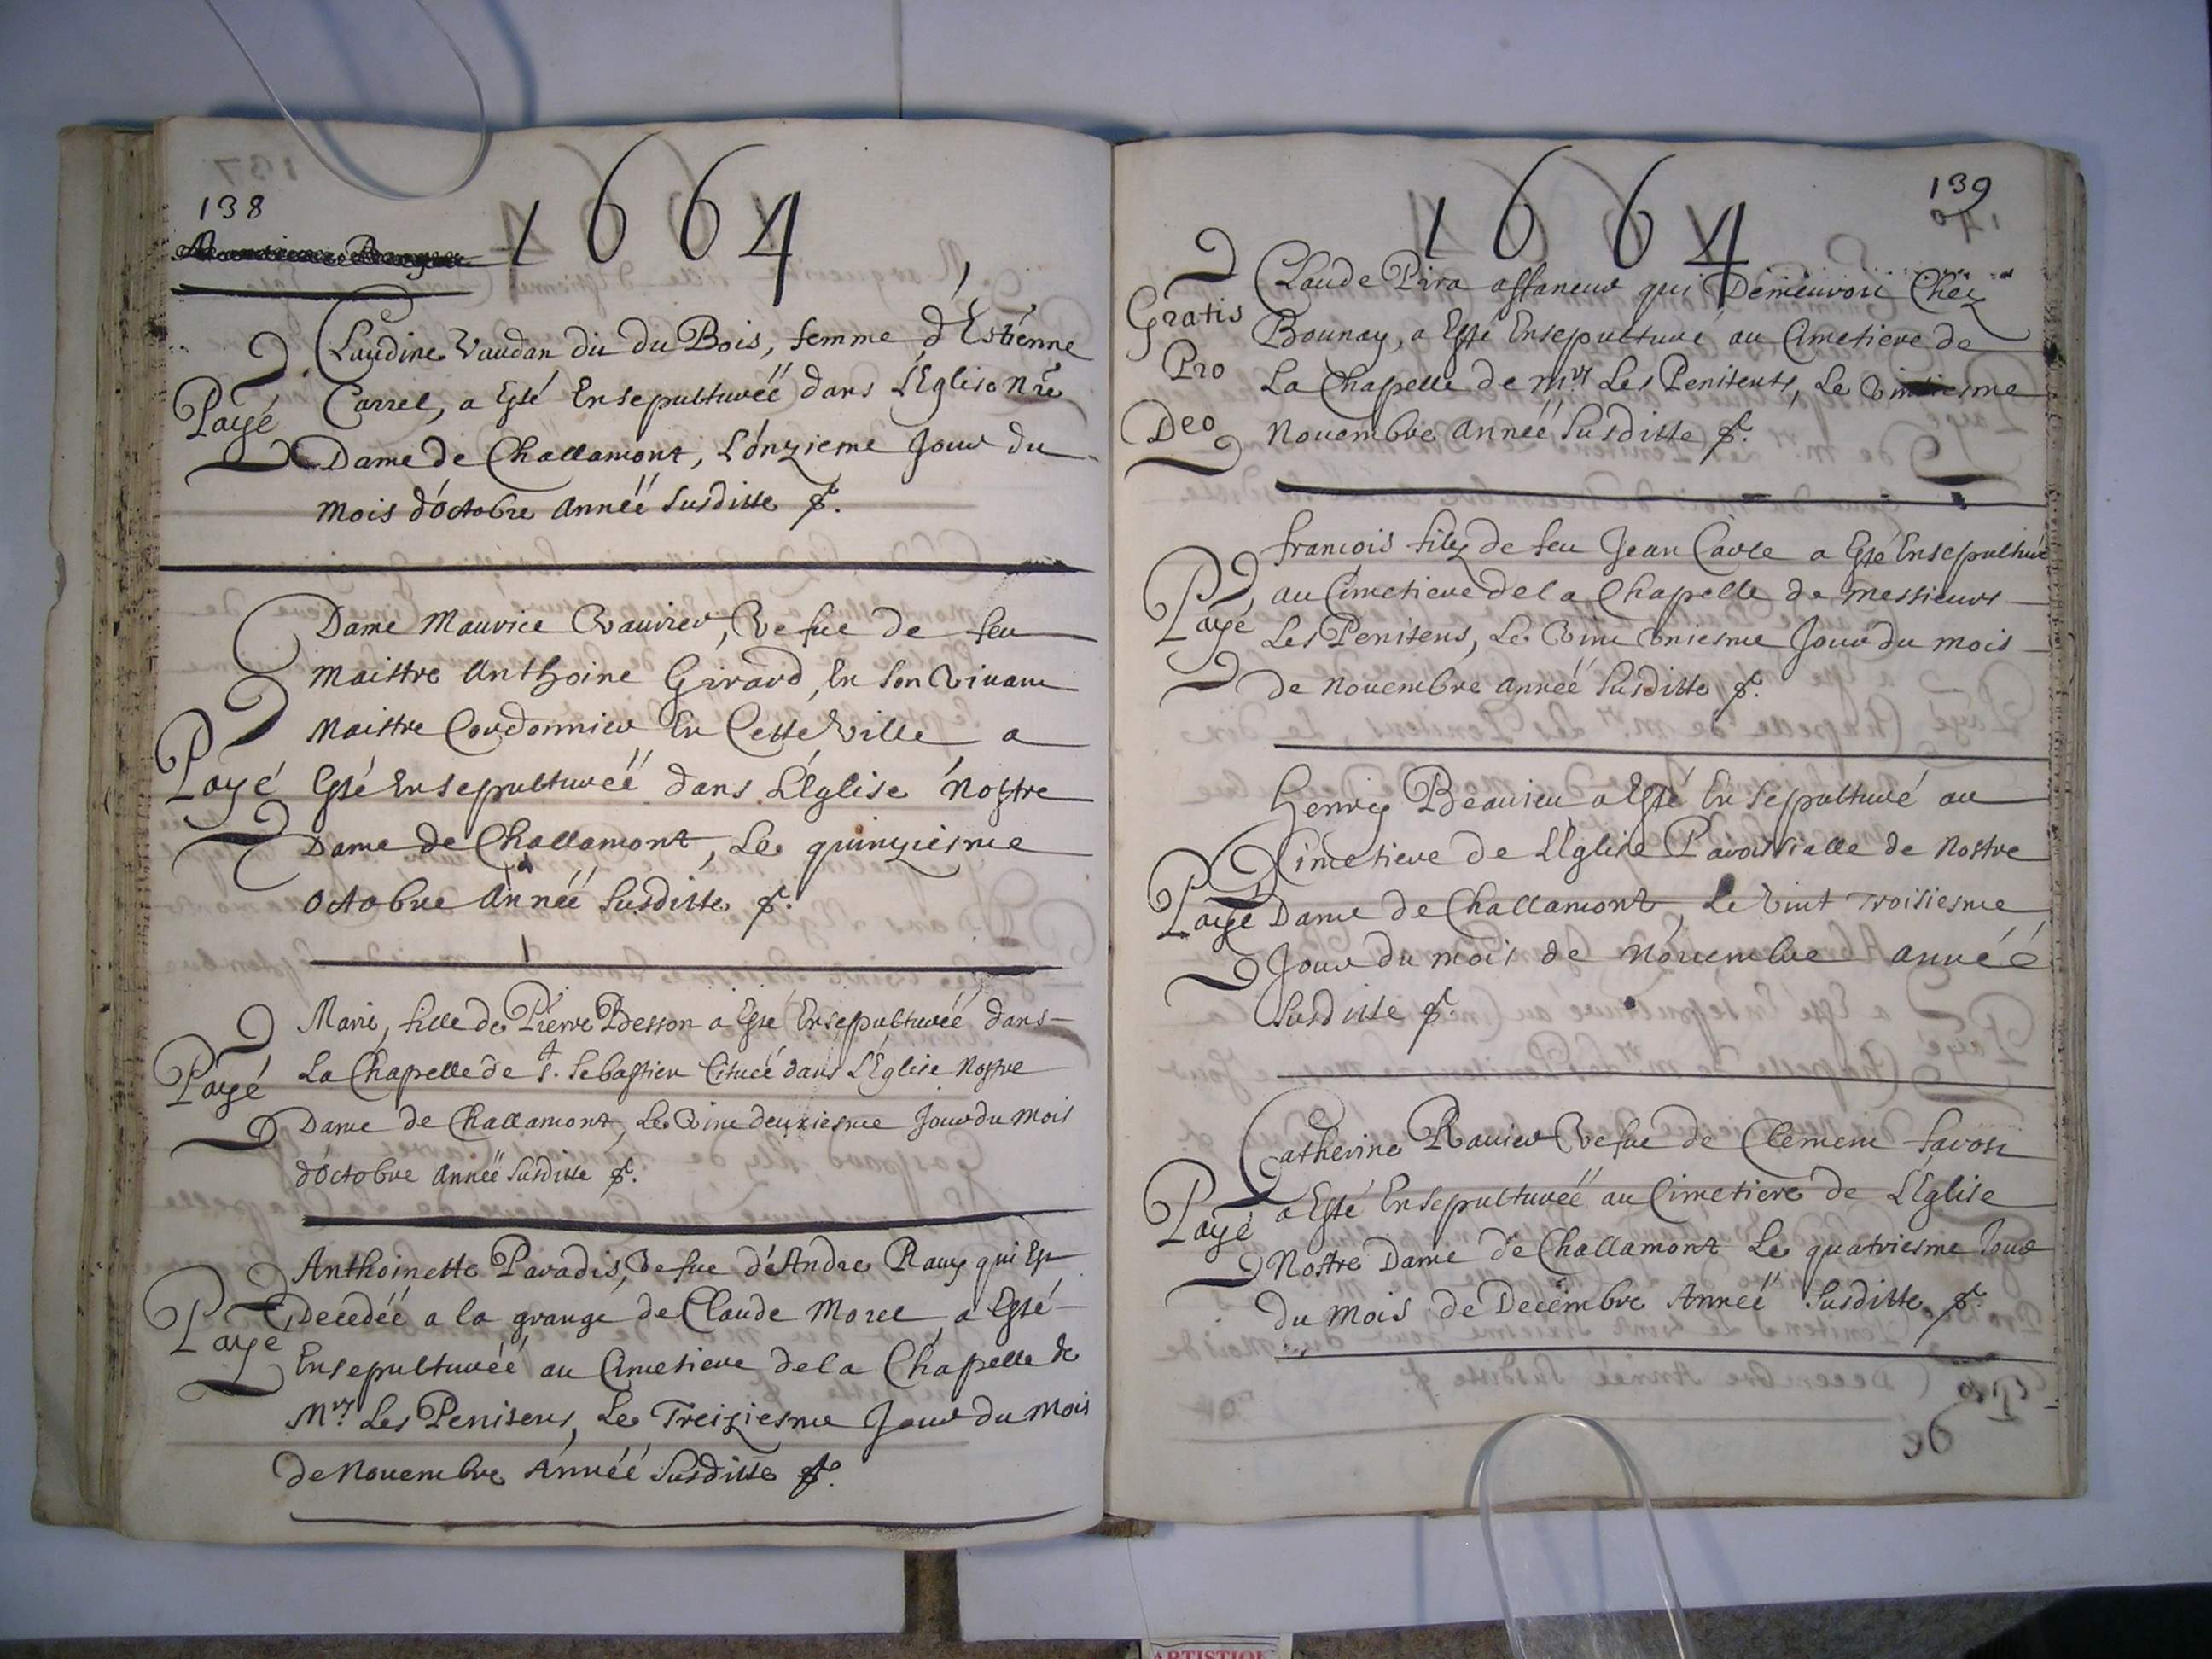 138
1664
Claudine Vaudan dit du Bois, femme d'Estienne
Carrel, a Esté Ensepulturéé dans L'Eglise Nre
Payé
Dame de Challamont, L'onzieme Jour du
mois d'octobre Annéé susditte
Dame Maurice Vaurier, Vefue de feu
maistre Anthoine Girard, En son Viuant
Maistre Cordonnier En Cette Ville a
Payé
Esté Ensepulturéé dans L'Eglise Nostre
Dame de Challamont, Le quinziesme
octobre Annéé susditte
Marie, fille de Pierre Besson a Esté Ensepulturéé dans
Payé
La Chapelle de St. Sebastien Cituéé dans L'Eglise Nostre
Dame de Challamont, Le Vint deuxiesme Jour du Mois
d'octobre Annéé susditte
Anthoinette Paradis, Vefue d'Andre Ramy qui Est
Payé
Decedéé a la grange de Claude Morel, a Esté
Ensepulturéé au Cimetiere de la Chapelle de
Mrs Les Penitens, Le Treiziesme Jour du Mois
de Nouembre Annéé susditte
139
1664
Claude Pira affaneur qui Demeuroit Chez
Gratis
Bounay, a Esté Ensepulturé au Cimetiere de
Pro
La Chapelle de Mrs Les Penitents, Le
Deo
Nouembre Annéé susditte
francois filz de feu Jean Carle a Esté Ensepulturé
au Cimetiere de la Chapelle de Messieurs
Payé
Les Penitens, Le Vint Vniesme Jour du mois
de Nouembre Annéé susditte
Henry Beaurieu a Esté Ensepulturé au
Cimetiere de L'Eglise Paroissialle de Nostre
Payé
Dame de Challamont, Le Vint Troisiesme
Jour du mois de Nouembre Annéé
susditte
Catherine Rauier Vefue de Clement Sauoi
a Esté Ensepulturéé au Cimetiere de L'Eglise
Payé
Nostre Dame de Challamont Le quatriesme Jour
du Mois de Decembre Annéé susditte